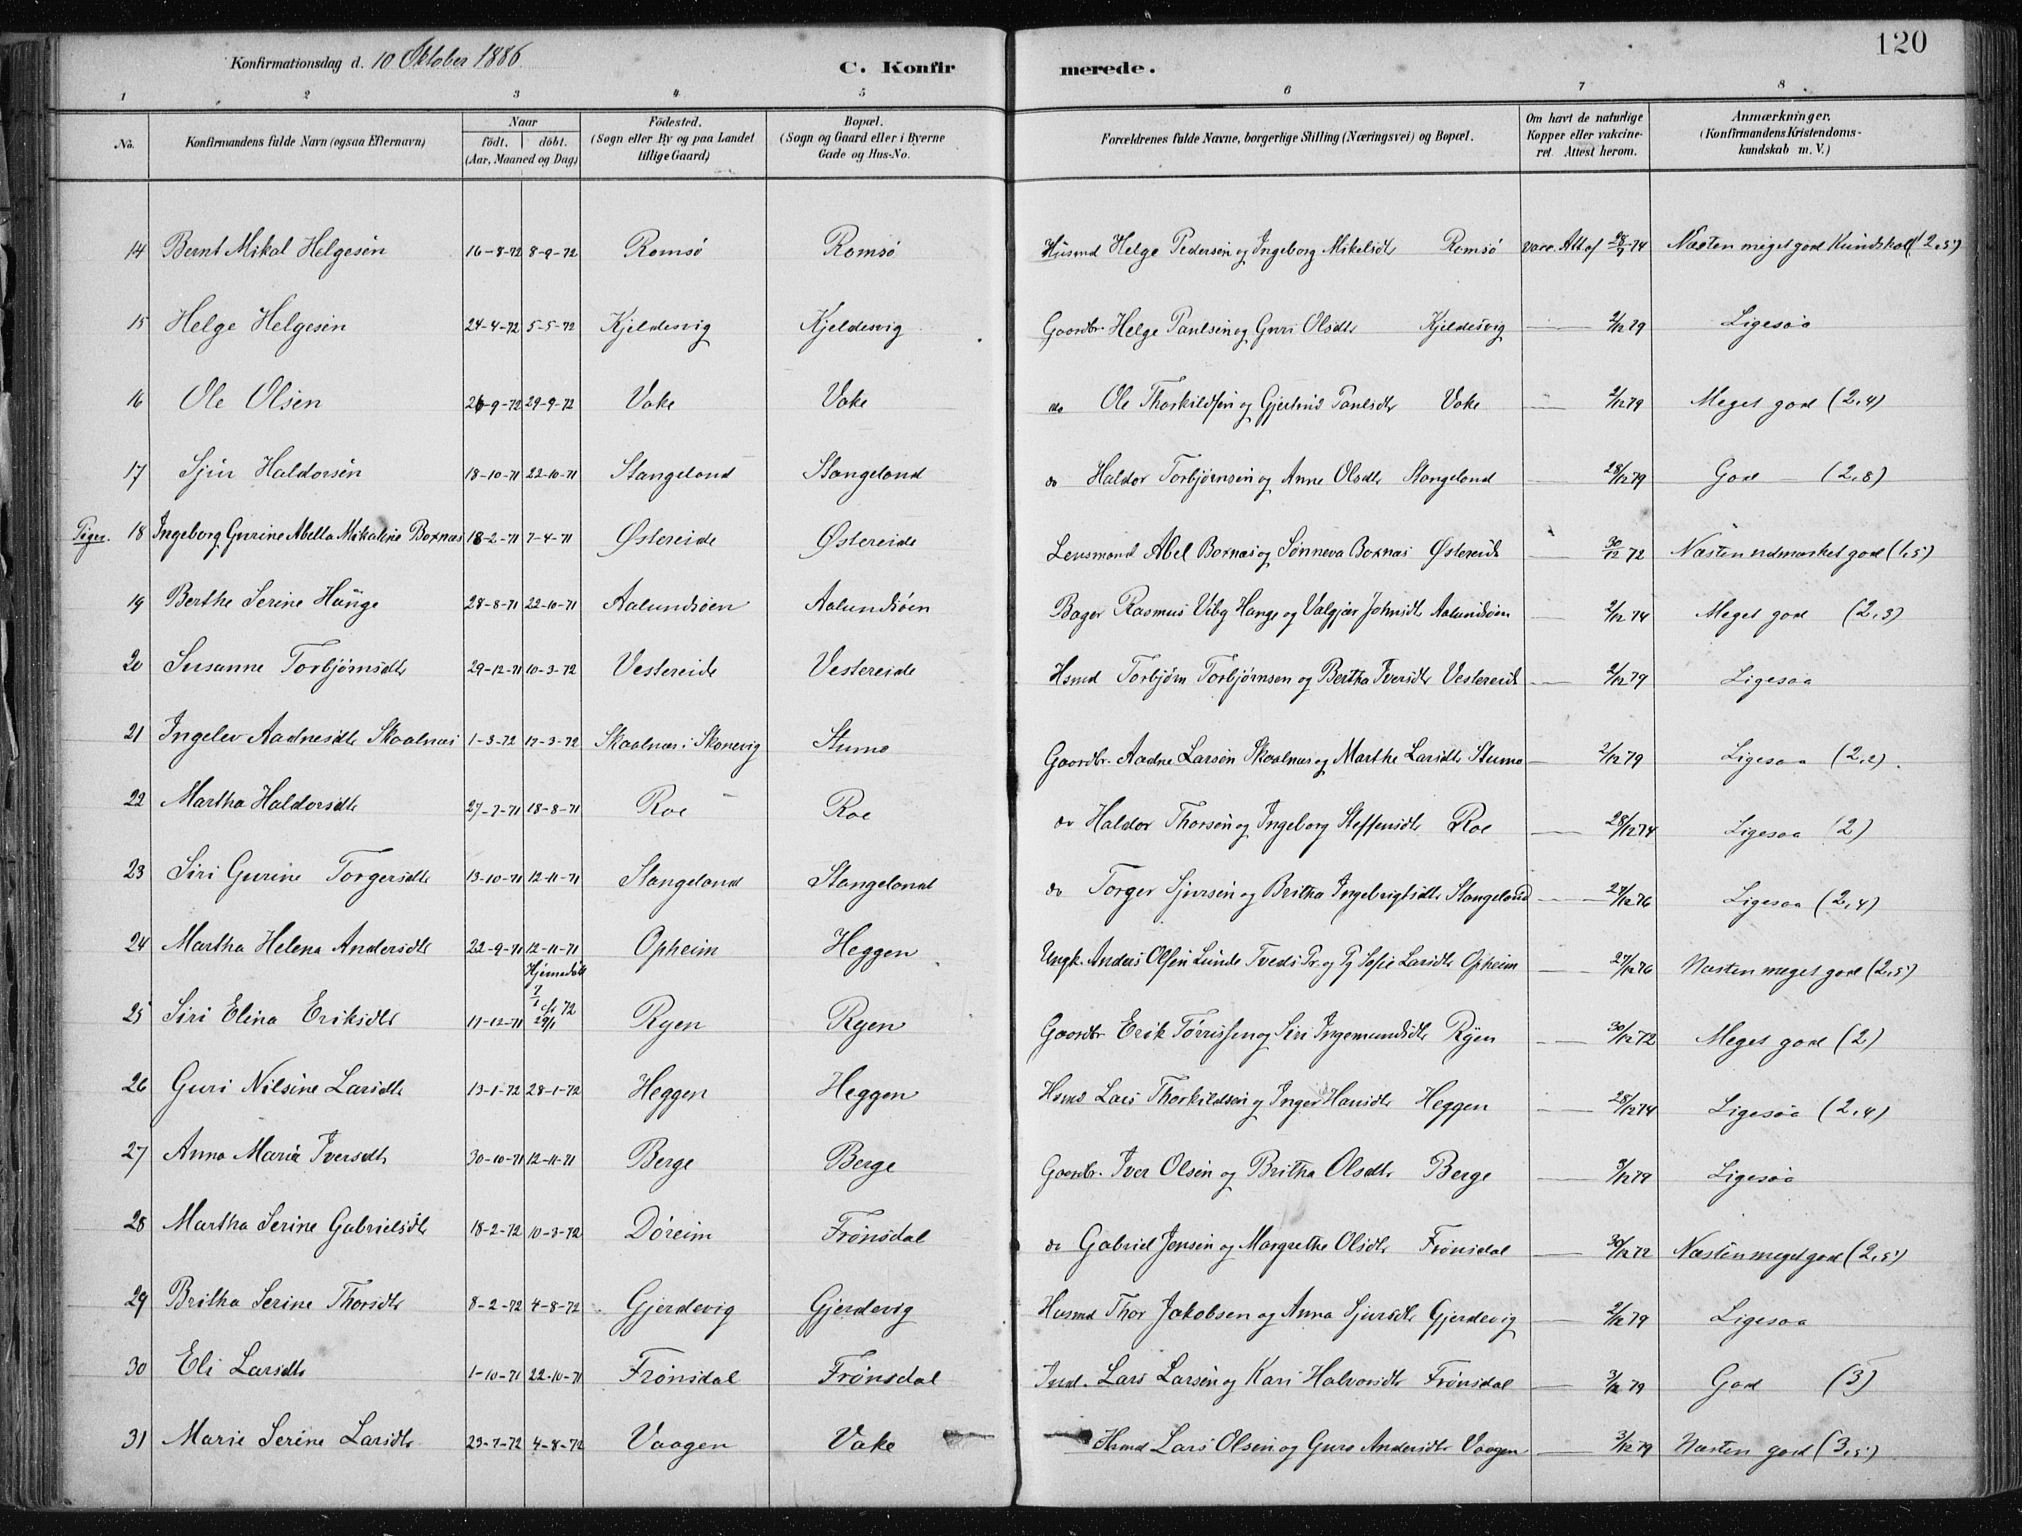 120
Konfirmationsdag d. 10 Oktober 1886.
C. Konfirmerede.
1 2 3 4 5 6 7 8
No. Konfirmandens fulde Navn (ogsaa Efternavn) Naar født. døbt. (Aar, Maaned og Dag) Fødested. (Sogn eller By og paa Landet tillige Gaard) Bopæl. (Sogn og Gaard eller i Byerne Gade og Hus-No. Forældrenes fulde Navne, borgerlige Stilling (Næringsvei) og Bopæl. Om havt de naturlige Kopper eller vakcineret. Attest herom. Anmærkninger. (Konfirmandens Kristendomskundskab m. V.)
14 Bernt Mikal Helgesen 16-8-72 8-9-72 Romsø Romsø Husmd Helge Pedersen og Ingeborg Mikelsdtr Romsø vacc. Att af 74 Næsten meget god Kundskab (2,5)
15 Helge Helgesen 24-4-72 5-5-72 Kjeldesvig Kjeldesvig Gaardbr. Helge Paulsen og Guri Olsdtr Kjeldesvig — 2/12 79 Ligesaa
16 Ole Olsen 26-9-72 29-9-72 Vake Vake do Ole Thorkildsen og Gjertrud Paulsdtr Vake — 2/12 79 Meget god (2,4)
17 Sjur Haldorsen 18-10-71 22-10-71 Stangeland Stangeland do Haldor Torbjørnsen og Anne Olsdtr Stangeland — 28/12 79 God — (2,8)
Piger. 18 Ingeborg Gurine Abella Mikaline Boxnæs 18-2-71 7-4-71 Østereide Østereide Lensmand Abel Boxnæs og Sønneva Boxnæs Østereide — 30/12 72 Næsten udmærket god (1,5)
19 Berthe Serine Hauge 28-8-71 22-10-71 Aalundsøen Aalundsøen Bager Rasmus Viby Hauge og Valgjær Johnsdtr Aalundsøen — 2/12 74 Meget god (2,3)
20 Susanne Torbjørnsdtr 29-12-71 10-3-72 Vestereide Vestereide Hsmd Torbjørn Torbjørnsen og Bertha Iversdtr Vestereide — 2/12 79 Ligesaa
21 Ingelev Aadnesdtr Skaalnæs 1-3-72 17-3-72 Skaalnæs i Skonevig Stumo Gaardbr. Aadne Larsen Skaalnæs og Marthe Larsdtr Stumo — 2/12 79 Ligesaa (2,2).
22 Martha Haldorsdtr 27-7-71 18-8-71 Roe Roe do Haldor Thorsen og Ingeborg Steffensdtr Roe — 28/12 74 Ligesaa (2)
23 Siri Gurine Torgersdtr 13-10-71 12-11-71 Stangeland Stangeland do Torger Sjursen og Britha Ingebrigtsdtr Stangeland — 27/12 76 Ligesaa (2,4)
24 Martha Helena Andersdtr 22-9-71 12-11-71 Opheim Heggen Ungk. Anders Olsen Lunde Tveds Pr. og Pg Sofie Larsdtr Opheim — 27/12 76 Næsten meget god (2,5)
25 Siri Elina Eriksdtr 17-12-71 Hjemmedøbt 7/1 72 29/1 Ryen Ryen Gaardbr Erik Tørrissen og Siri Ingemundsdtr Ryen — 30/12 72 Meget god (2)
26 Guri Nilsine Larsdtr 13-1-72 28-1-72 Heggen Heggen Hsmd Lars Thorkildsen og Inger Hansdtr Heggen — 28/12 74 Ligesaa (2,4)
27 Anna Maria Iversdtr 30-10-71 12-11-71 Berge Berge Gaardbr. Iver Olsen og Britha Olsdtr Berge — 3/12 79 Ligesaa
28 Martha Serine Gabrielsdtr 18-2-72 10-3-72 Døreim Frønsdal do Gabriel Jensen og Margrethe Olsdtr Frønsdal — 30/12 72 Næsten meget god (2,5)
29 Britha Serine Thorsdtr 8-2-72 4-8-72 Gjerdevig Gjerdevig Husmd Thor Jakobsen og Anna Sjursdtr Gjerdevig — 2/12 79 Ligesaa
30 Eli Larsdtr 1-10-71 22-10-71 Frønsdal Frønsdal Ind. Lars Larsen og Kari Halvorsdtr Frønsdal — 3/12 79 God (3)
31 Marie Serine Larsdtr 23-7-72 4-8-72 Vaagen Vake Hsmd Lars Olsen og Guro Andersdtr Vaagen — 3/12 79 Næsten god (3,5)